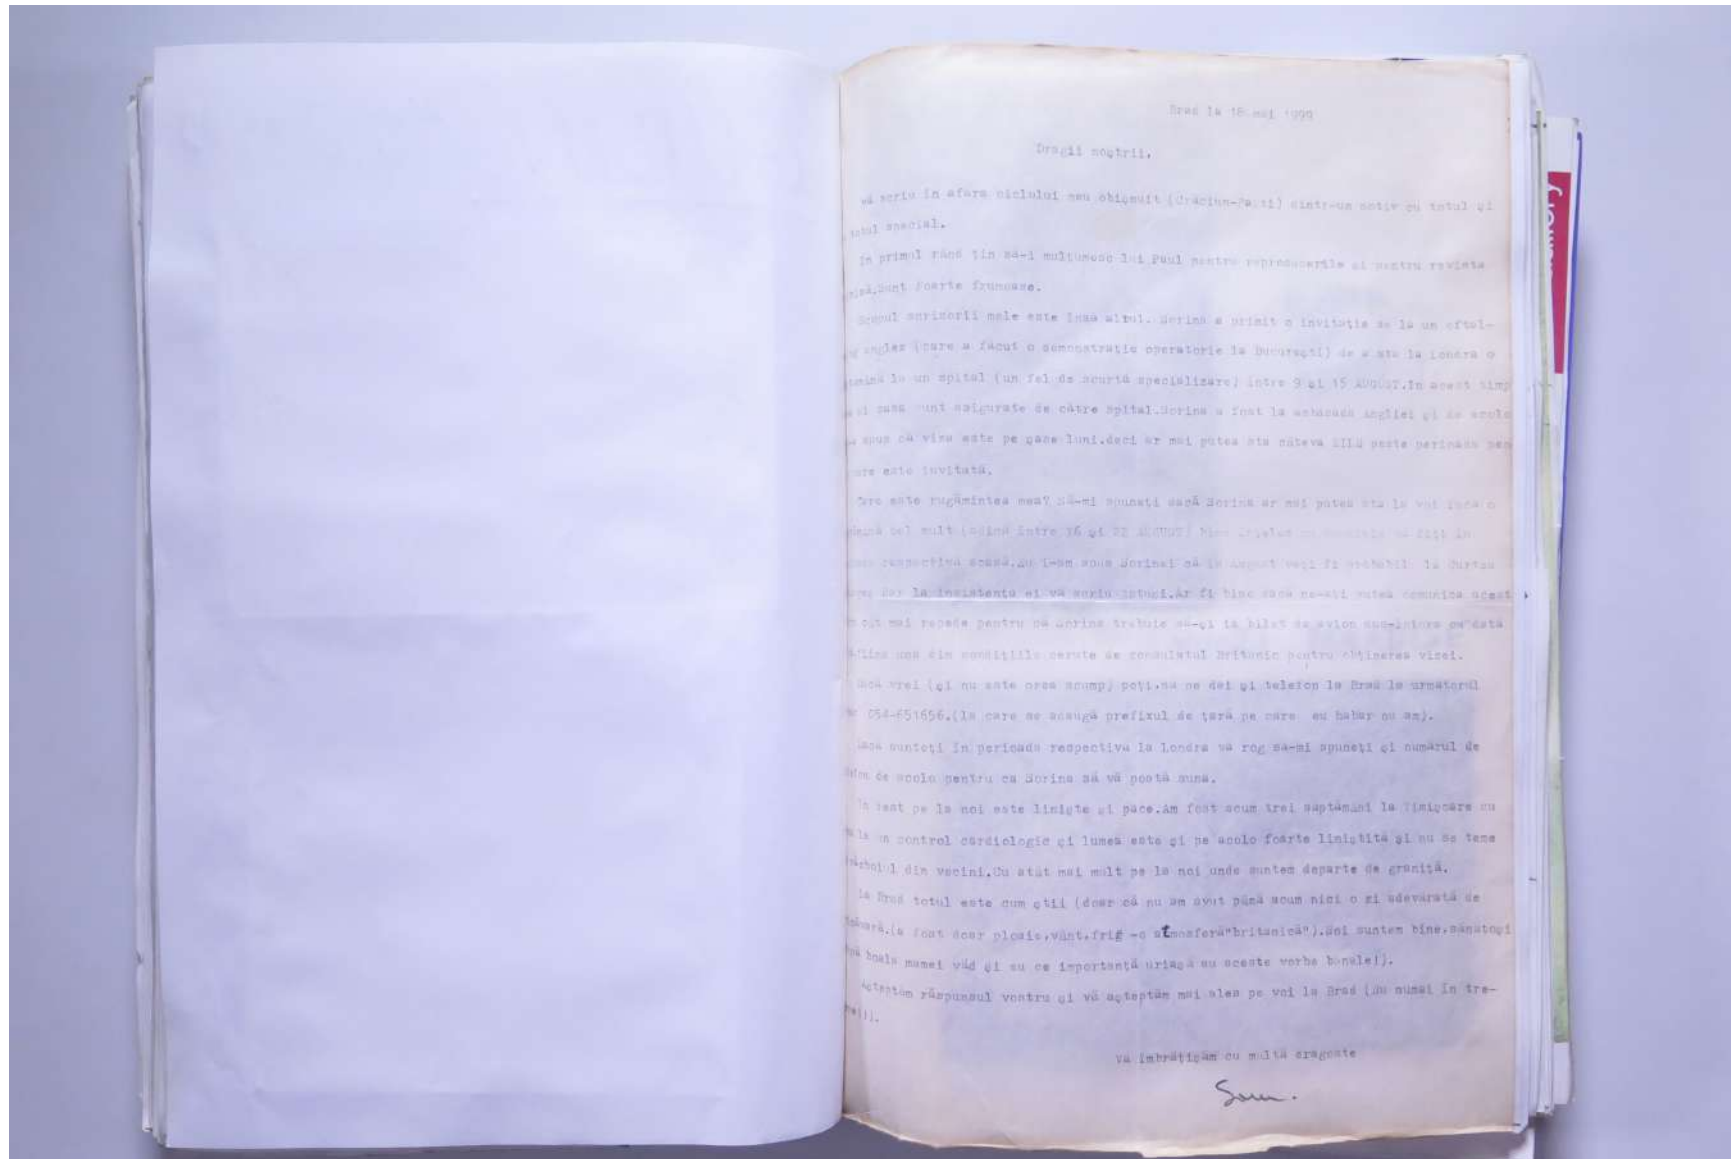 Brad la 18 mai 1999
Dragii noștrii,
Vă scriu în afara ciclului meu obișnuit (Crăciun-Paști) dintr-un motiv cu totul și
totul special.
In primul rând țin să-i multumesc lui Paul pentru reproducerile și pentru revista
Sunt foarte frumoase.
Scopul scrisorii mele este însă altul. Sorina a primit o invitație de la un oftal-
englez (care a făcut o demonstratie operatorie la București) de a sta la Londra o
la un spital (un fel de scurtă specializare) între 9 și 15 AUGUST.In acest timp
și casa sunt asigurate de către spital.Sorina a fost la ambasada Angliei și de acolo
spus că viza este pe șase luni.deci ar mai putea sta câteva ZILE peste perioada pen
care este invitată.
Care este rugămintea mea? Să-mi spuneți dacă Sorina ar mai putea sta la voi încă o
cel mult (adică între 16 și 22 AUGUST) să fiți în
respectivă acasă.Eu i-am spus Sorinei că în August veți fi probabil la Curtea
dar la insistența ei vă scriu totuși.Ar fi bine dacă ne-ați putea comunica acest
cât mai repede pentru că Sorina trebuie să-și ia bilet de avion dus-întors cu dată
una din condițiile cerute de consulatul Britanic pentru obținerea vizei.
Dacă vrei (și nu este prea scump) poți.să ne dei și telefon la Brad la următorul
054-651656.(la care se adaugă prefixul de țară pe care eu habar nu am).
Dacă sunteți în perioada respectivă la Londra vă rog să-mi spuneți și numărul de
de acolo pentru ca Sorina să vă poată suna.
In rest pe la noi este liniște și pace.Am fost acum trei săptămâni la Timișoara cu
la un control cardiologic și lumea este și pe acolo foarte liniștită și nu se teme
războiul din vecini.Cu atât mai mult pe la noi unde suntem departe de graniță.
La Brad totul este cum știi (doar că nu am avut până acum nici o zi adevărată de
(a fost doar ploaie,vânt,frig -o atmosferă"britanică").Noi suntem bine,sănătoși
boala mamei văd și eu ce importanță uriașă au aceste vorbe banale!).
Așteptăm răspunsul vostru și vă așteptăm mai ales pe voi la Brad (nu numai în tre-
Vă îmbrățișăm cu multă dragoste